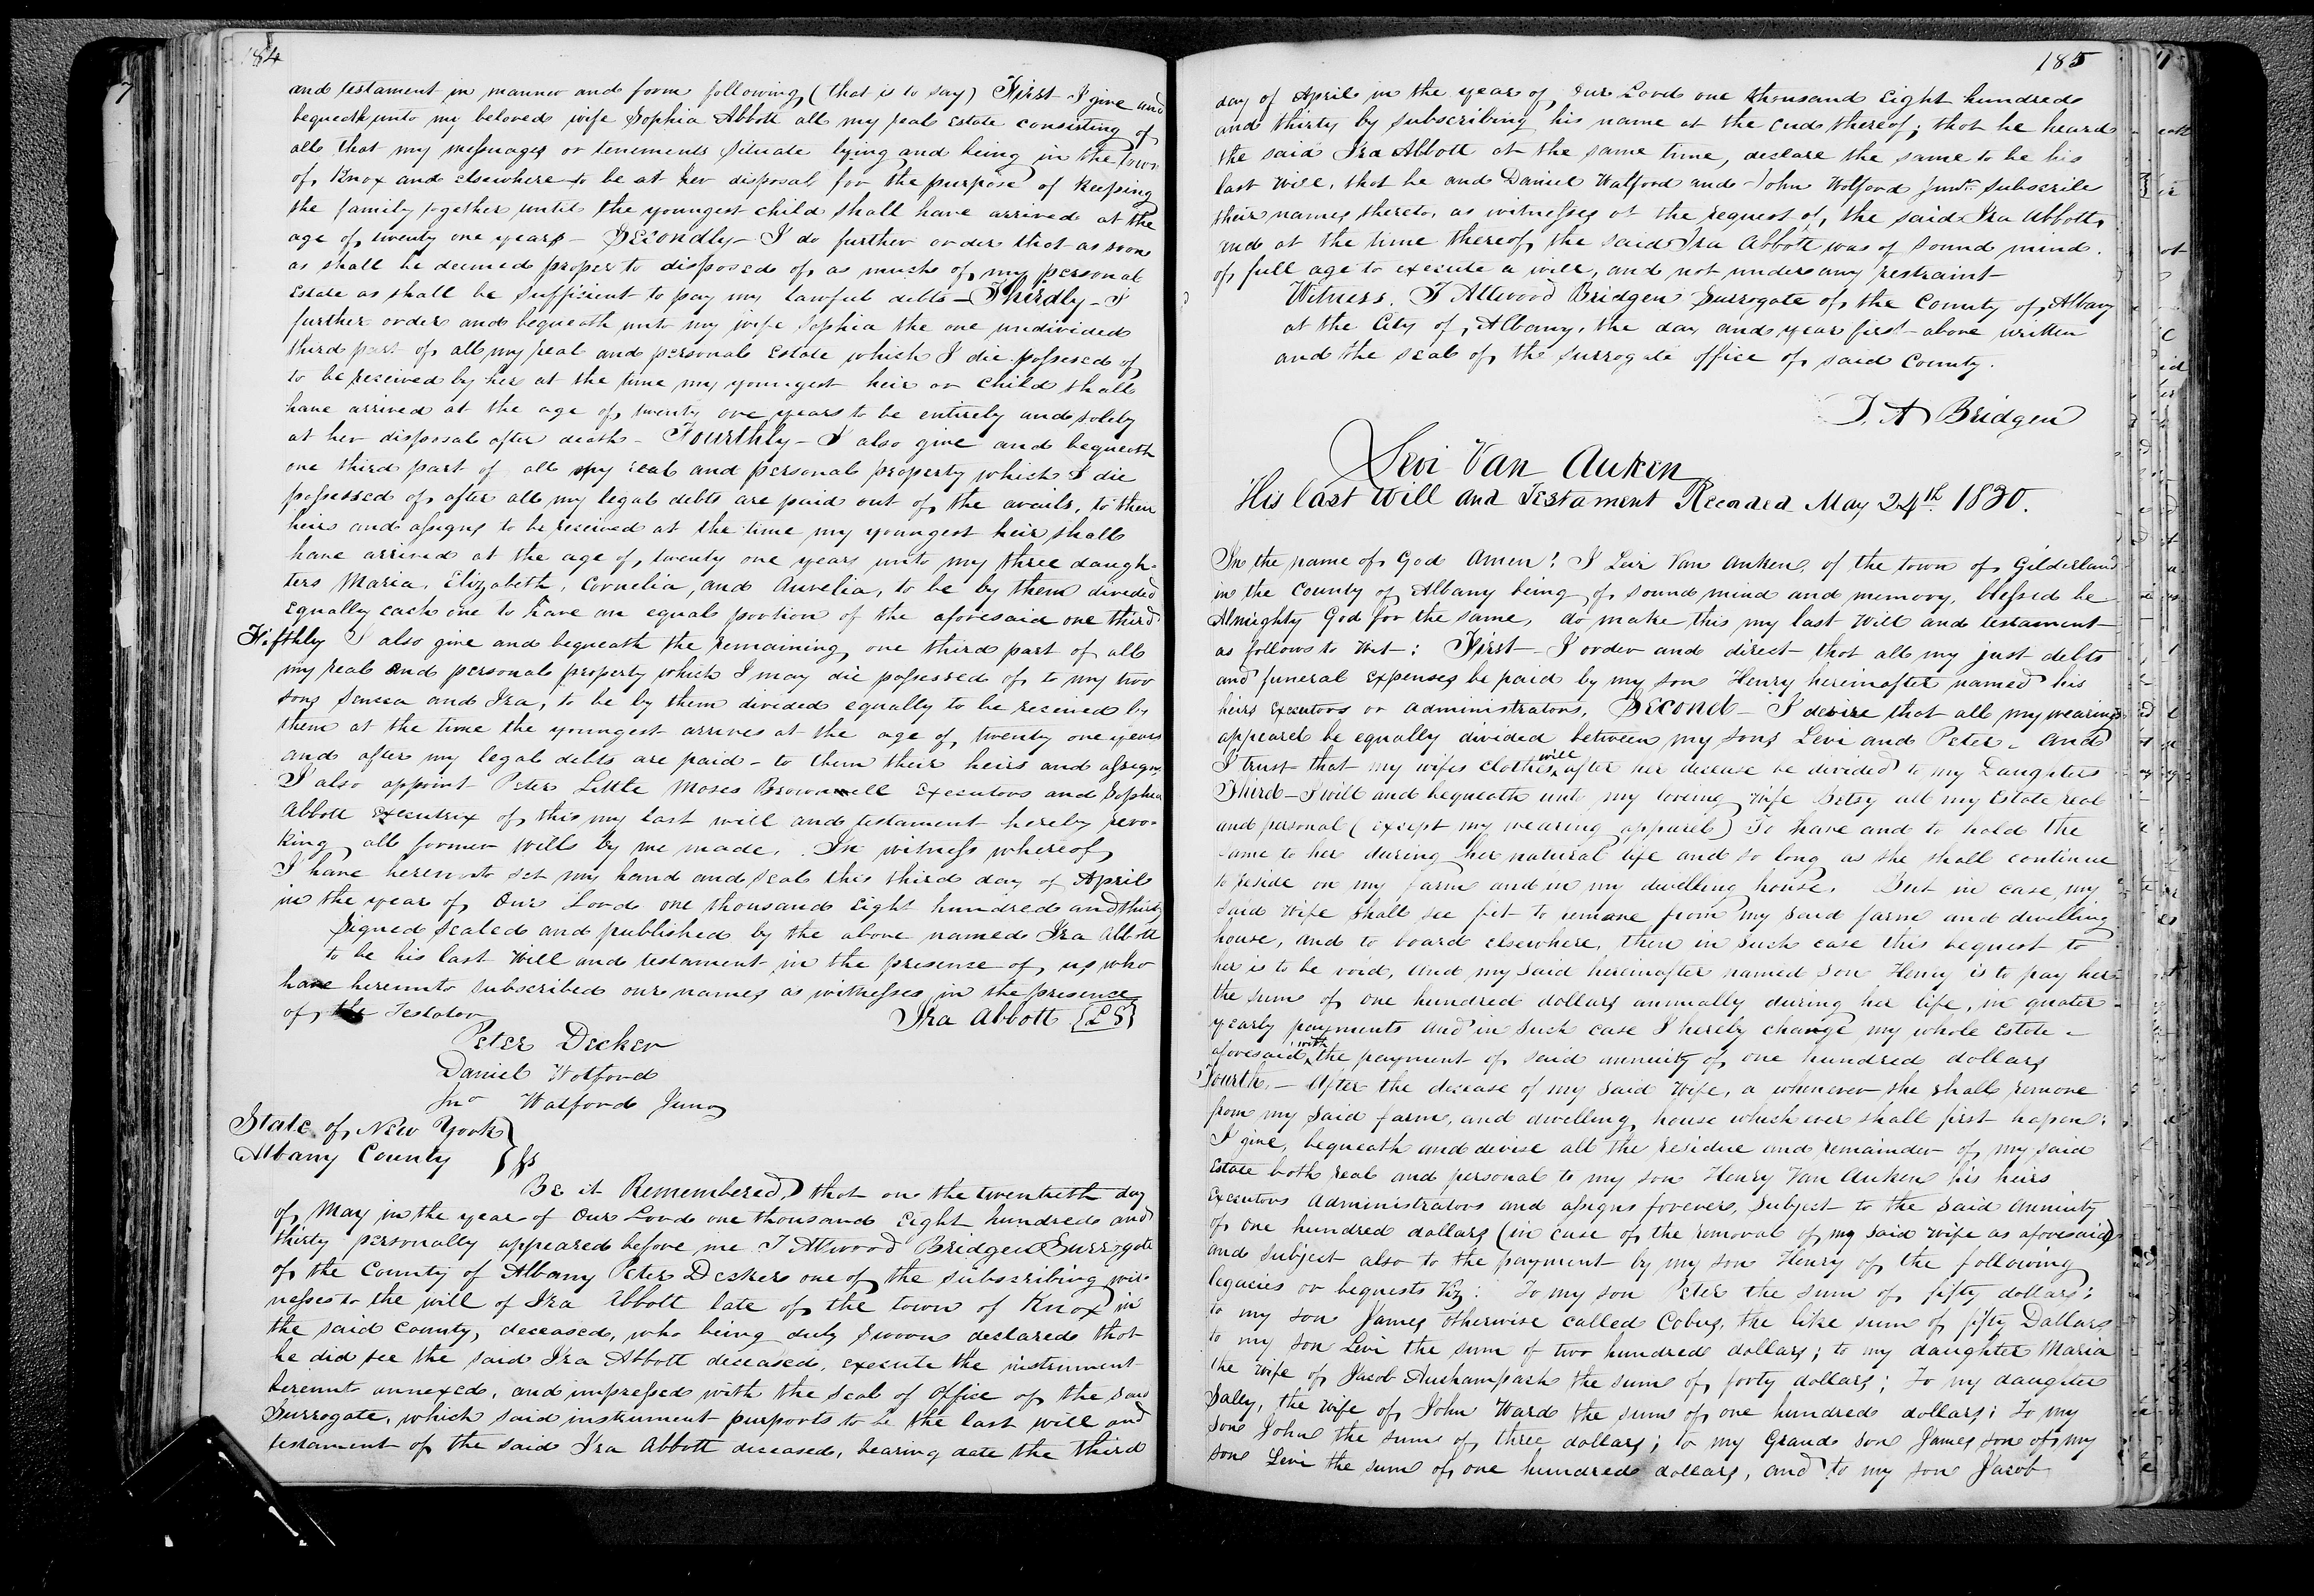 184
and testament in manner and form following, (that is to say) First I give and
bequeath unto my beloved wife Sophia Abbott all my real Estate consisting of
all that my messuages or tenements situate lying and being in the town
of Knox and elsewhere to be at her disposal for the purpose of keeping
the family together until the youngest child shall have arrived at the
age of twenty one years – Secondly – I do further order that as soon
as shall be deemed proper to disposed of as much of my personal
Estate as shall be sufficient to pay my lawful debts – Thirdly – I
further order and bequeath unto my wife Sophia the one undivided
third part of all my real and personal Estate which I die possesed of
to be received by her at the time my youngest heir or child shall
have arrived at the age of twenty one years to be entirely and solely
at her disposal after death – Fourthly – I also give and bequeath
one third part of all my real and personal property which I die
possessed of, after all my legal debts are paid out of the avails, to their
heirs and assigns to be received at the time my youngest heir shall
have arrived at the age of twenty one years unto my three daugh-
ters Maria, Elizabeth, Cornelia, and Aurelia, to be by them divided
equally each one to have an equal portion of the aforesaid one third
Fifthly I also give and bequeath the remaining one third part of all
my real and personal property which I may die possessed of to my two
sons Seneca and Ira, to be by them divided equally to be received by
them at the time the youngest arrives at the age of twenty one years
and after my legal debts are paid – to them their heirs and assigns
I also appoint Peter Little Moses Brownell Executors and Sophia
Abbott Executrix of this my last will and testament hereby revo-
king all former wills by me made. In witness whereof,
I have hereunto set my hand and seal this third day of April
in the year of Our Lord one thousand Eight hundred and thirty
Signed Sealed and published by the above named Ira Abbott
to be his last Will and testament in the presence of us who
have hereunto subscribed our names as witnesses in the presence
of the Testator
Ira Abbott {LS}
Peter Decker
Daniel Wolford
Jno Walford Junr
State of New York }
Albany County } ss
Be it Remembered, that on the twentieth day
of May in the year of Our Lord one thousand Eight hundred and
thirty personally appeared before me T Attwood Bridgen Surrogate
of the County of Albany Peter Decker one of the subscribing wit-
nesses to the will of Ira Abbott late of the town of Knox in
the said County, deceased, who being duly sworn declared that
he did see the said Ira Abbott deceased, execute the instrument
hereunto annexed, and impressed with the Seal of Office of the said
Surrogate, which said instrument purports to be the last will and
testament of the said Ira Abbott deceased, bearing date the third
185
day of April in the year of Our Lord one thousand Eight hundred
and thirty by subscribing his name at the end thereof; that he heard
the said Ira Abbott at the same time, declare the same to be his
last Will, that he and Daniel Walford and John Wolford Junr. subscribe
their names thereto, as witnesses at the request of the said Ira Abbott,
and at the time thereof, the said Ira Abbott was of sound mind.
of full age to execute a will, and not under any restraint
Witness. T Attwood Bridgen Surrogate of the County of Albany
at the City of Albany, the day and year first above written
and the seal of the surrogate office of said County.
T. A Bridgen
Levi Van Auken
His last Will and Testament Recorded May 24th 1830.
In the name of God Amen! I Levi Van Auken, of the town of Gilderland
in the County of Albany being of sound mind and memory, blessed be
Almighty God for the same, do make this my last Will and testament
as follows to Wit: First – I order and direct that all my just debts
and funeral expenses be paid by my son Henry hereinafter named his
heirs Executors or administrators, Second – I desire that all my wearing
appearel be equally divided between my sons Levi and Peter – and
I trust that my wifes clothes will after her decease be divided to my Daughters
Third – I will and bequeath unto my loveing wife Betsy all my Estate real
and personal (except my wearing apparel) To have and to hold the
same to her during her natural life and so long as she shall continue
to reside on my farm and in my dwelling house. But in case, my
said Wife shall see fit to remove from my said farm and dwelling
house, and to board elsewhere, then in such case this bequest to
her is to be void, and my said hereinafter named son Henry is to pay her
the sum of one hundred dollars annually during her life, in quater
yearly payments and in such case I hereby change my whole Estate –
aforesaid with the payment of said annuity of one hundred dollars
Fourth. – After the decease of my said Wife, a whenever she shall remove
from my said farm, and dwelling house which ever shall first hapen;
I give, bequeath and devise all the residue and remainder of my said
Estate both real and personal to my son Henry Van Auken his heirs
Executors Administrators and assigns forever, Subject to the said annuity
of one hundred dollars (in case of the removal of my said wife as aforesaid)
and subject also to the payment by my son Henry of the following
legacies or bequests Viz: To my son Peter the sum of fifty dollars;
to my son James otherwise called Cobus, the like sum of fifty Dollars
to my son Levi the sum of two hundred dollars; to my daughter Maria
the wife of Jacob Aushampaih the sum of forty dollars; To my daughter
Sally, the wife of John Ward the sum of one hundred dollars; To my
son John the sum of three dollars; to my Grand son James son of my
son Levi the sum of one hundred dollars, and to my son Jacob